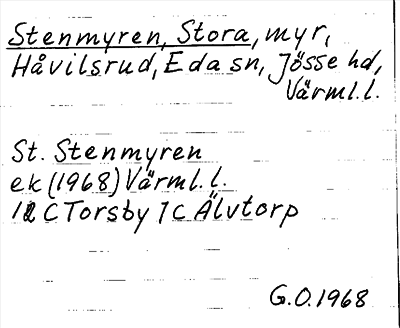 Stenmyren, Stora, myr,
Håvilsrud, Eda sn, Jösse hd,
Värml.l.
St. Stenmyren
ek (1968) Värml.l.
12 C Torsby 7 C Älvtorp
G.O. 1968